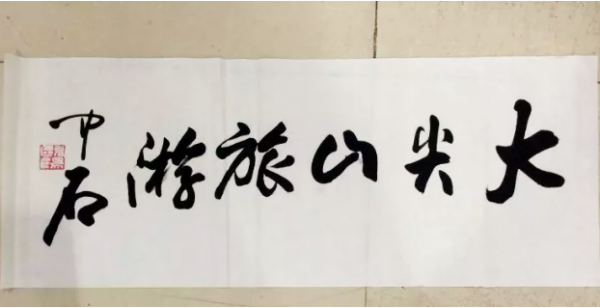 大尖山旅游
中石